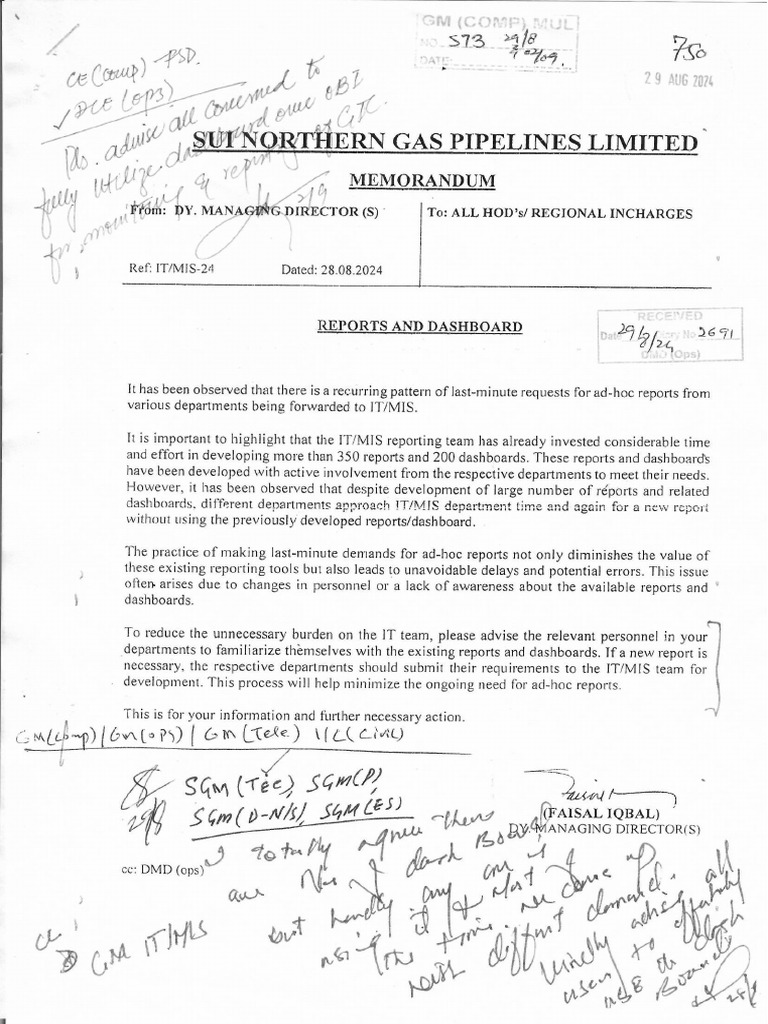 GM (COMP) MUL
NO. 573 29/8
DATE: 2/09.
750
29 AUG 2024
CE (Comp) - PSD.
✓ DCE (OPS)
Pls. advise all concerned to
fully utilize dashboard over OBI
for monitoring & reporting of GTC.
2/9
SUI NORTHERN GAS PIPELINES LIMITED
MEMORANDUM
From: DY. MANAGING DIRECTOR (S)
To: ALL HOD's/ REGIONAL INCHARGES
Ref: IT/MIS-24 Dated: 28.08.2024
REPORTS AND DASHBOARD
RECEIVED
Date 29/8/24 Diary No 2691
DMD (Ops)
It has been observed that there is a recurring pattern of last-minute requests for ad-hoc reports from
various departments being forwarded to IT/MIS.
It is important to highlight that the IT/MIS reporting team has already invested considerable time
and effort in developing more than 350 reports and 200 dashboards. These reports and dashboards
have been developed with active involvement from the respective departments to meet their needs.
However, it has been observed that despite development of large number of reports and related
dashboards, different departments approach IT/MIS department time and again for a new report
without using the previously developed reports/dashboard.
The practice of making last-minute demands for ad-hoc reports not only diminishes the value of
these existing reporting tools but also leads to unavoidable delays and potential errors. This issue
often arises due to changes in personnel or a lack of awareness about the available reports and
dashboards.
To reduce the unnecessary burden on the IT team, please advise the relevant personnel in your
departments to familiarize themselves with the existing reports and dashboards. If a new report is
necessary, the respective departments should submit their requirements to the IT/MIS team for
development. This process will help minimize the ongoing need for ad-hoc reports.
This is for your information and further necessary action.
GM(Comp) | GM(OPS) | GM (Tele) I/C (Civil)
SGM (Tec), SGM(P),
SGM (D-N/S), SGM (ES)
29/8
(FAISAL IQBAL)
DY. MANAGING DIRECTOR(S)
cc: DMD (ops)
I totally agree there
are No of dash Boards
but hardly any one is
using it & Most of
the time. we come up
with different demand.
Kindly advise all
users to
use the dash
Board
cc
GM IT/MIS